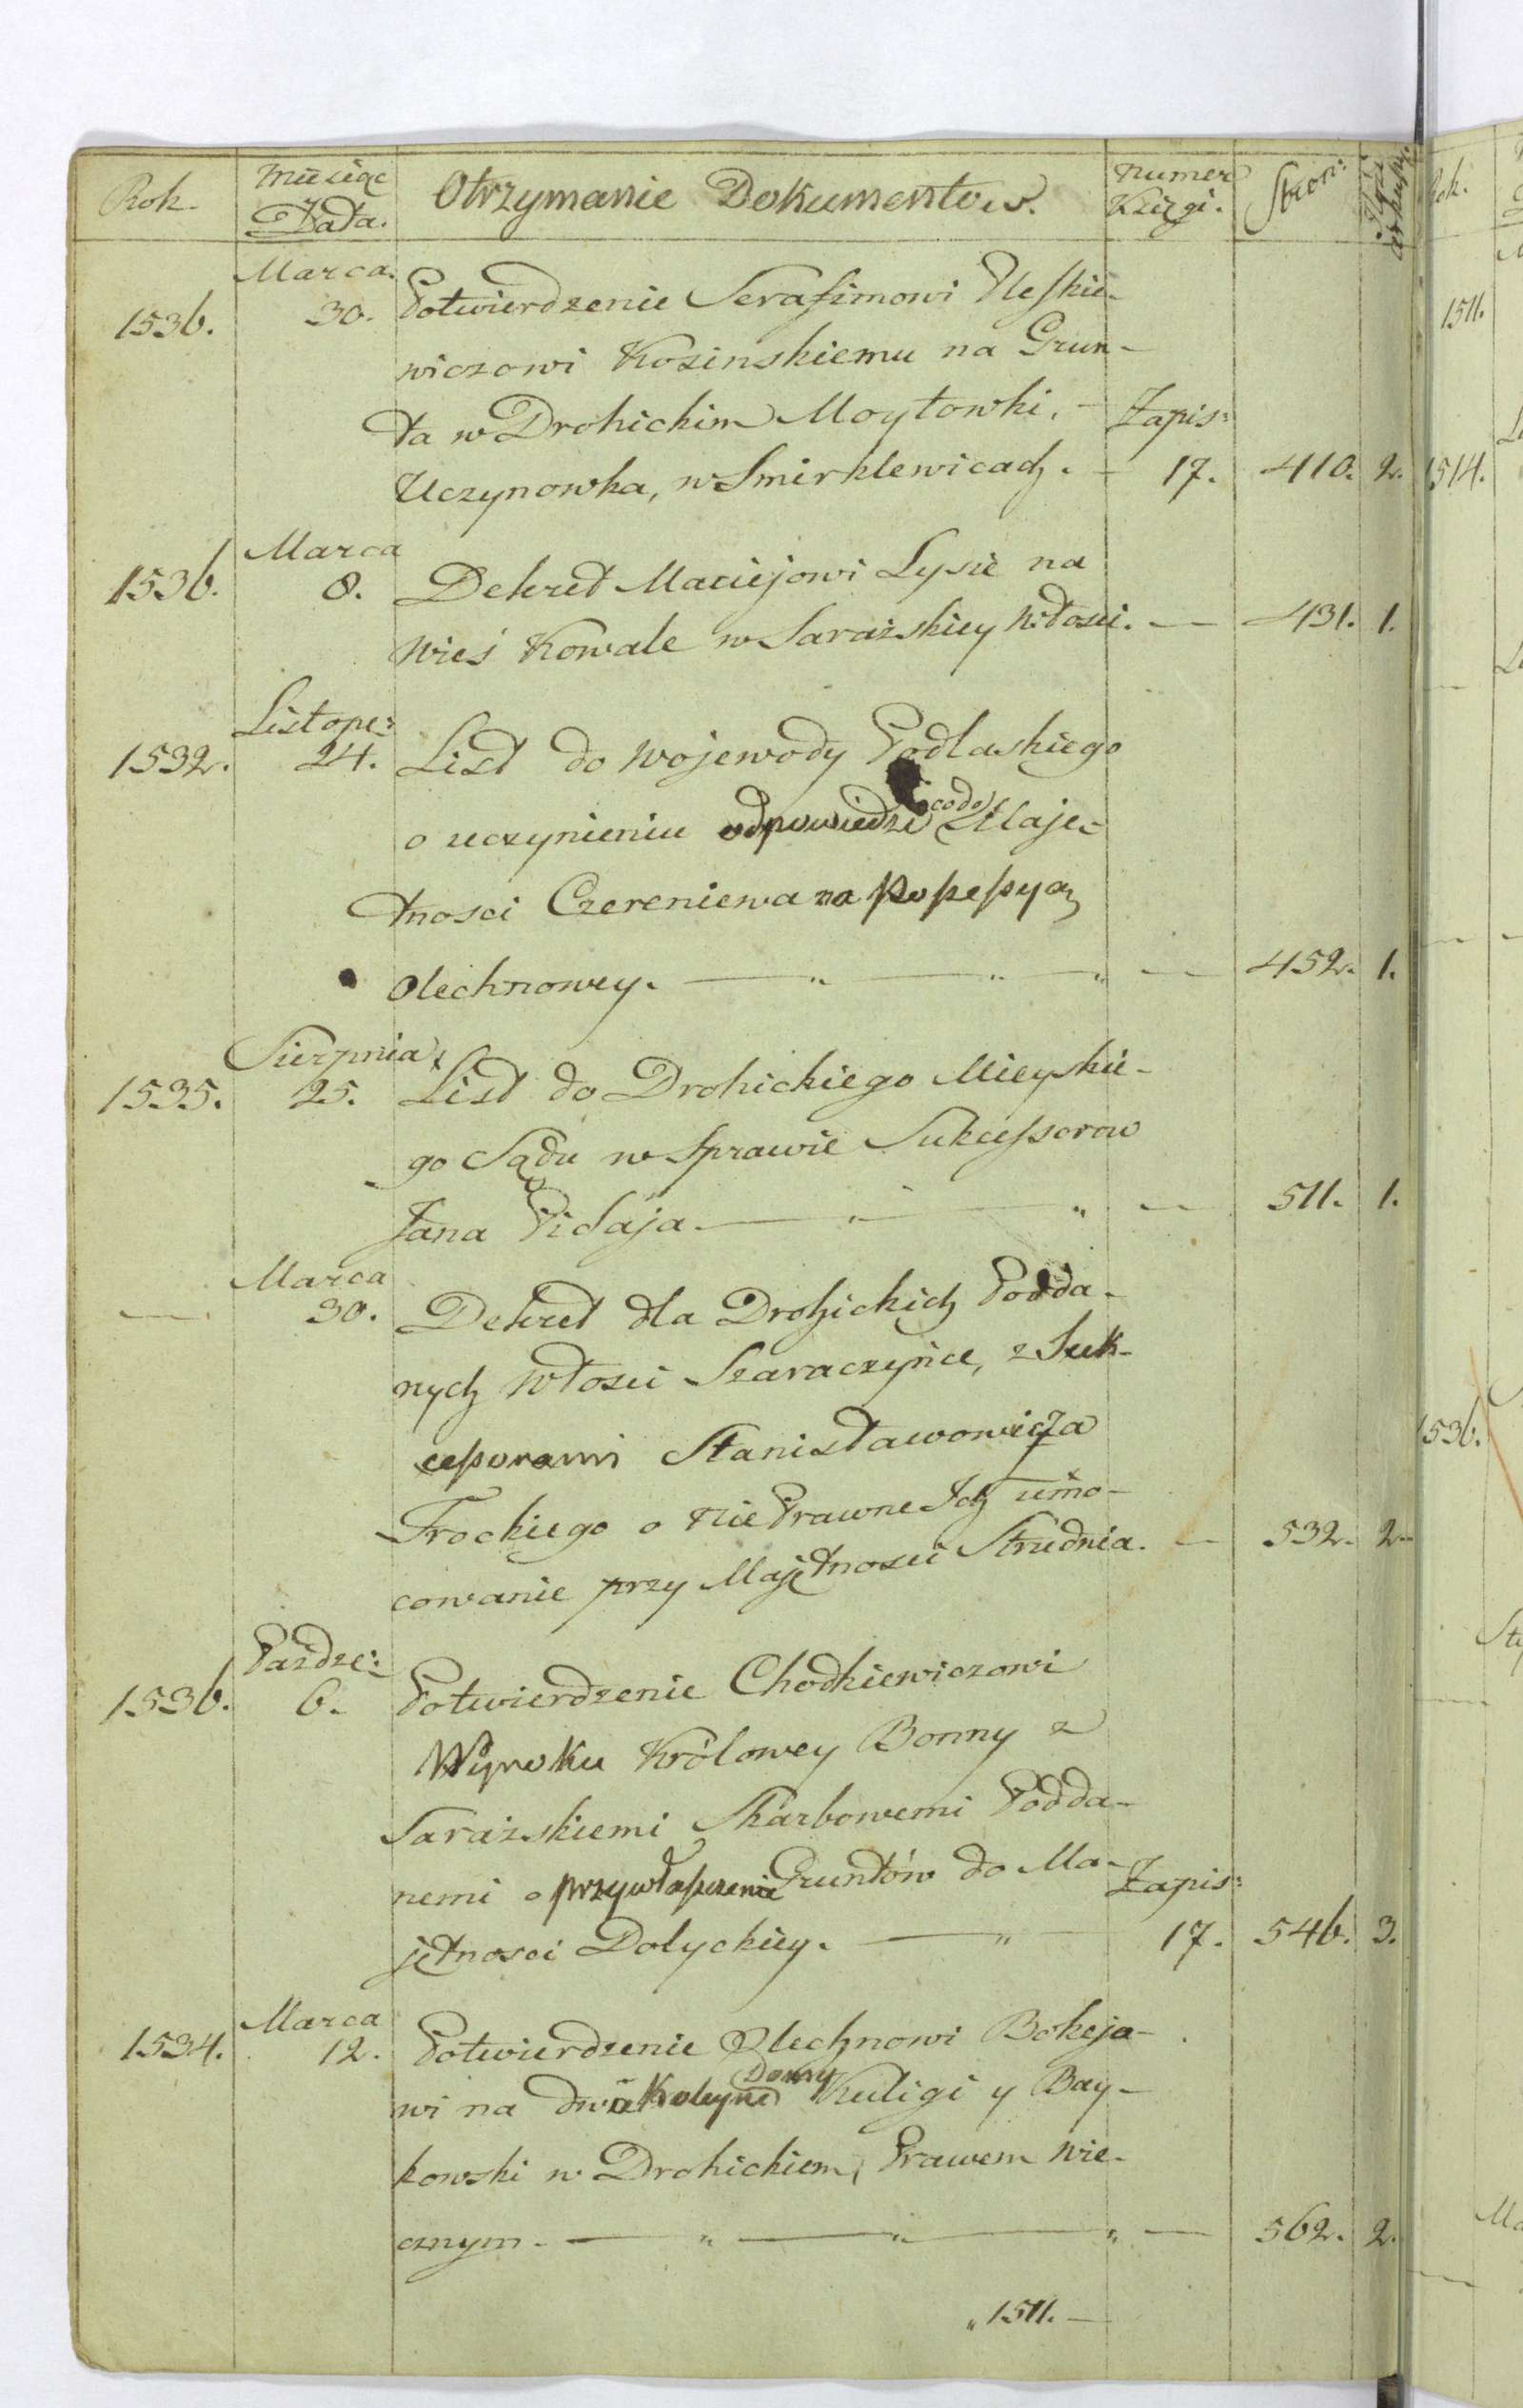 Rok. Miesiąc Data. Otrzymanie Dokumentow. Numer Księgi. Stron:
Marca.
1536. 30. Potwierdzenie Serafimowi Uleskie-
wiczowi Kosinskiemu na Grun-
ta w Drohickim Moytowki. - Zapis:
Uczynowka, w Smirklewicach. - 17. 410. 2.
Marca
1536. 8. Dekret Maciejowi Lysie na
Wieś Kowale w Sarażskiey Włosci. — 431. 1.
Listopa:
1532. 24. List do Wojewody Podlaskiego
o uczynieniu odpowiedzi co do Maję-
tnosci Czereniewa na
Olechnowey. — „ — „ — „ — 452. 1.
Sierpnia
1535. 25. List do Drohickiego Mieyskie-
go Sądu w Sprawie Sukcessorow
Jana Pisaja. — „ — „ — 511. 1.
Marca
— 30. Dekret dla Drohickich Podda-
nych Włosci Szaraczyńce, z Suk-
cessorami Stanisławowicza
Trockiego o nie Prawne Ich umo-
cowanie przy Majętnosci Studnia. — 532. 2.
Pazdze:
1536. 6. Potwierdzenie Chodkiewiczowi
Wyroku Królowey Bonny z
Sarażskiemi Skarbowemi Podda-
nemi o przywłaszczenie Gruntów do Ma- Zapis:
jętnosci Dolyckiey. — „ 17. 546. 3.
Marca
1534. 12. Potwierdzenie Olechnowi Bokeja-
wi na dwa Domy Kuligi y Bay-
kowski w Drohickiem, Prawem Wie-
cznym. — „ — „ — „ — 562. 2.
„ 1511. —